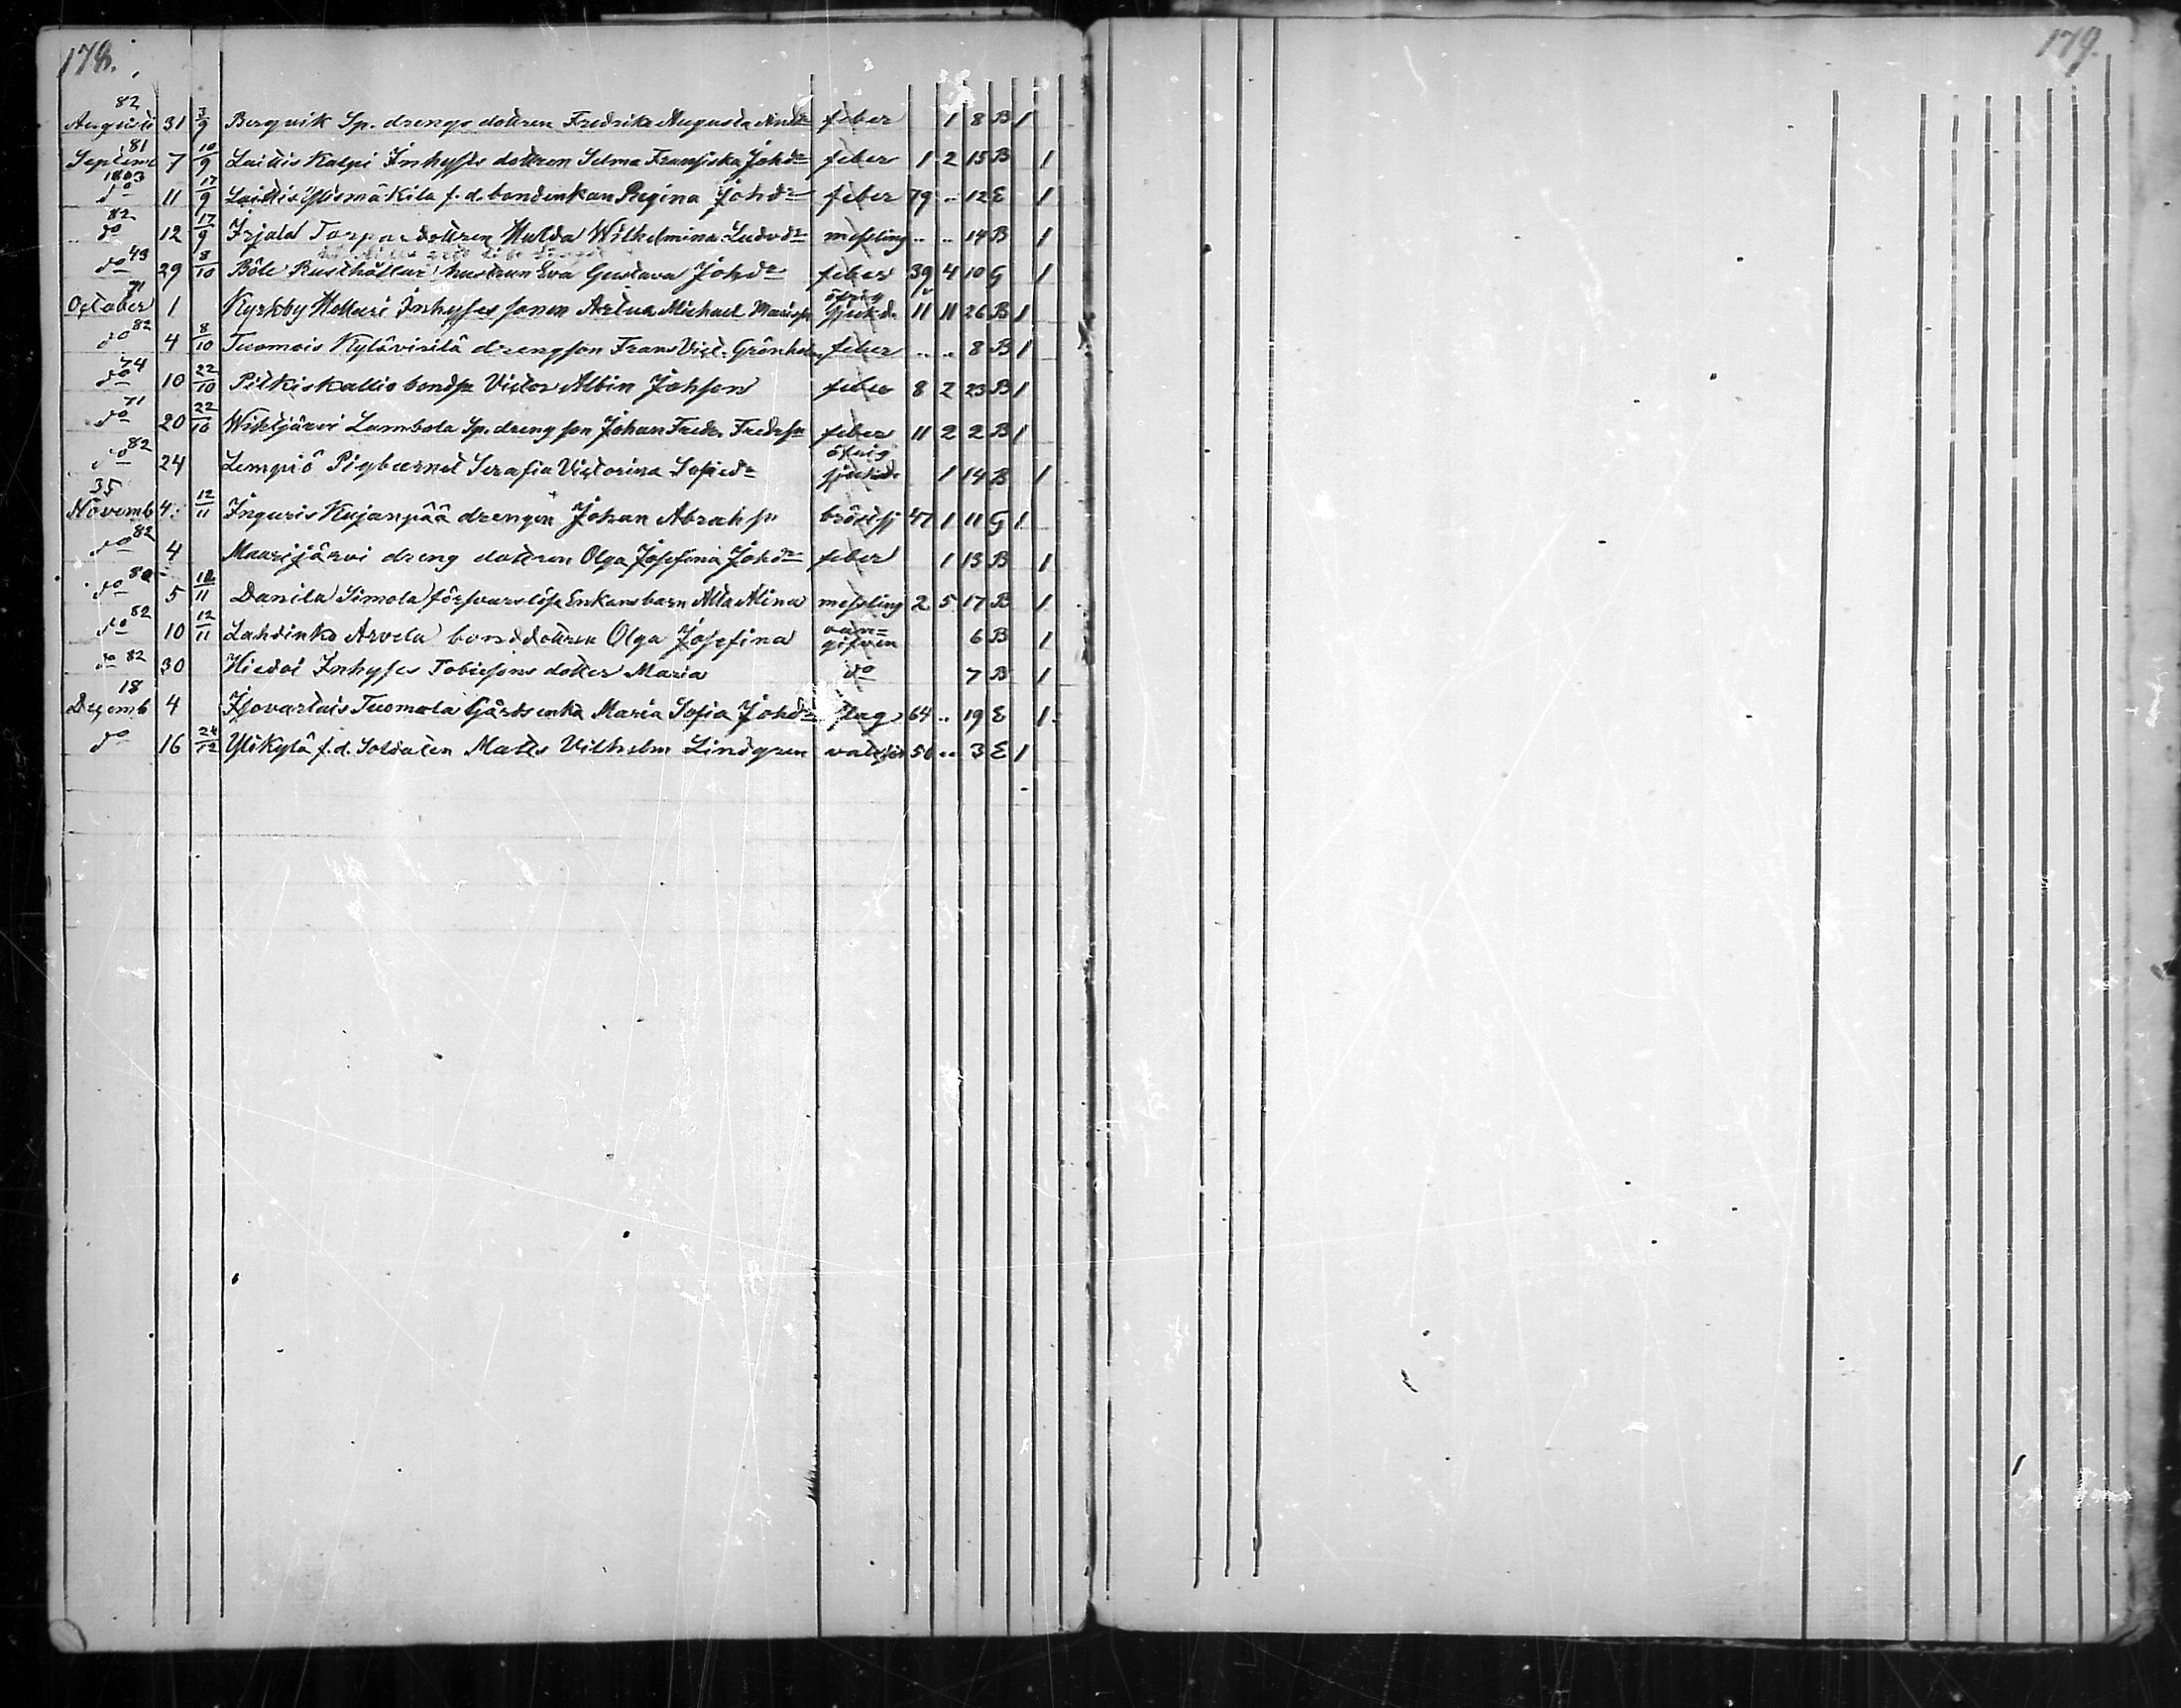 178.
179.
82
Augusti 31 3/9 Bergvik Sp. drengs dottren Fredrika Augusta feber 1 8 B 1
81
Septemb 7 10/9 Laitis Kalpi Inhyses dottren Selma Fransiska Johdr feber 1 2 15 B 1
1803
do 11 17/9 Laitis Ylismäkilä f.d. bondenkan Regina Johdr feber 79 .. 12 E 1
82
do 12 17/9 Irjala Torpar dottren Hulda Wilhelmina Ludvdr messling .. .. 14 B 1
do 43 29 8/10 Böle Rusthållar hustrun Eva Gustava Johdr feber 39 4 10 G 1
71
October 1 Kyrkby Hollari Inhyses sonen Artur Michael öfrig sjukd. 11 11 26 B 1
do 82 4 8/10 Tuomois Kylävisitä drengson Frans Vict. Grönholm feber .. .. 8 B 1
74
do 10 22/10 Pitkiskallio bondsn Victor Albin Johsson feber 8 2 23 B 1
71
do 20 22/10 Lambola Sp. dreng son Johan Fredr. Fredrsn feber 11 2 2 B 1
82
do 24 Lempiö Pigbarnet Serafia Victorina Sofiedr öfrig sjukd. 1 14 B 1
35
Novemb 4 12/11 Inguris Kujanpää drengen Johan Abrahsn bröstsj 47 1 11 G 1
do 82 4 Maurijärvi dreng dottren Olga Josefina Johdr feber 1 13 B 1
do 80 5 12/11 Danila Simola försvarslösa Enkans barn Alta Alina messling 2 5 17 B 1
do 82 10 12/11 Lahdinko Arvela bonddottren Olga Josefina oan=gifven 6 B 1
do 82 30 Hiedoi Inhyses Tobiesons dotter Maria do 7 B 1
18
Decemb 4 Tuomola Gårdsenka Maria Sofia Johdr slag 64 .. 19 E 1
do 16 24/12 Ylikylä f.d. Soldaten Matts Vilhelm Lindgren 50 .. 3 E 1